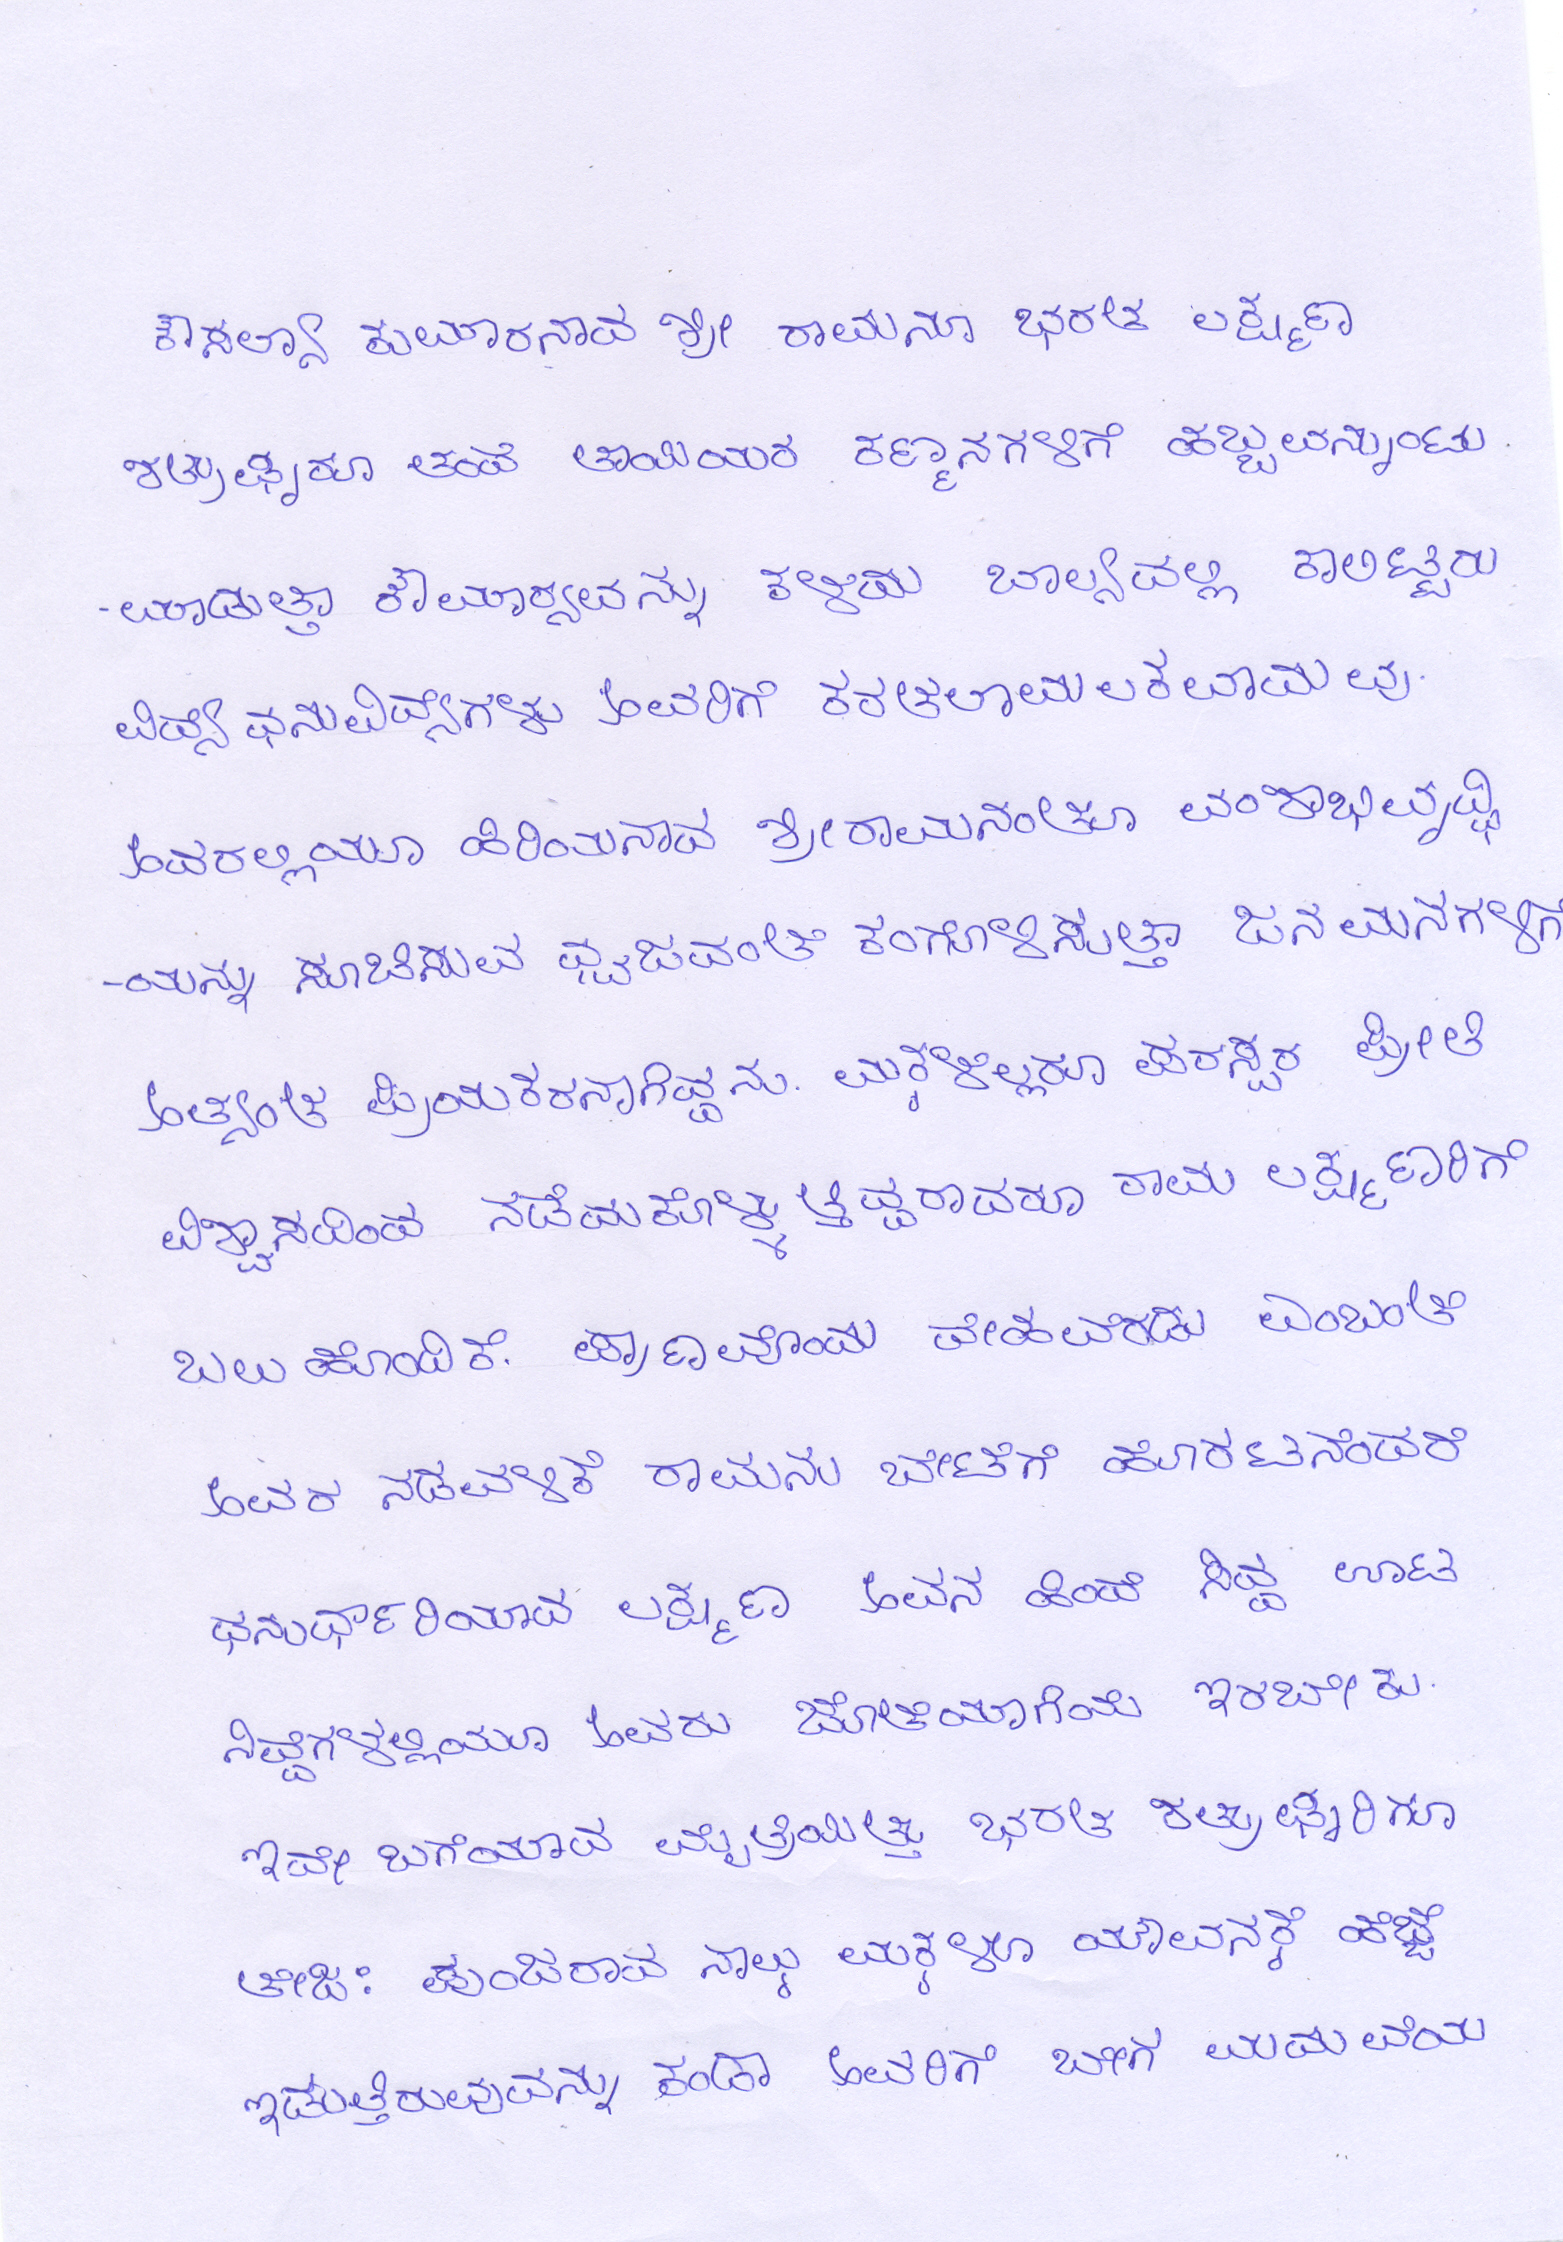 ಕೌಸಲ್ಯಾ ಕುಮಾರನಾದ ಶ್ರೀ ರಾಮನೂ ಭರತ ಲಕ್ಷ್ಮಣ
ಶತ್ರುಘ್ನರೂ ತಂದೆ ತಾಯಿಯರ ಕಣ್ಮನಗಳಿಗೆ ಹಬ್ಬವನ್ನುಂಟು
-ಮಾಡುತ್ತಾ ಕೌಮಾರ್ಯವನ್ನು ಕಳೆದು ಬಾಲ್ಯದಲ್ಲಿ ಕಾಲಿಟ್ಟರು
ವಿದ್ಯೆ ಧನುವಿದ್ಯೆಗಳು ಅವರಿಗೆ ಕರತಲಾಮಲಕವಾದುವು.
ಅವರಲ್ಲಿಯೂ ಹಿರಿಯನಾದ ಶ್ರೀರಾಮನಂತೂ ವಂಶಾಭಿವೃದ್ಧಿ
-ಯನ್ನು ಸೂಚಿಸುವ ಧ್ವಜದಂತೆ ಕಂಗೊಳಿಸುತ್ತಾ ಜನಮನಗಳಿಗೆ
ಅತ್ಯಂತ ಪ್ರಿಯಕರನಾಗಿದ್ದನು. ಮಕ್ಕಳೆಲ್ಲರೂ ಪರಸ್ಪರ ಪ್ರೀತಿ
ವಿಶ್ವಾಸದಿಂದ ನಡೆದುಕೊಳ್ಳುತ್ತಿದ್ದರಾದರೂ ರಾಮ ಲಕ್ಷ್ಮಣರಿಗೆ
ಬಲು ಹೊಂದಿಕೆ. ಪ್ರಾಣವೊಂದು ದೇಹವೆರಡು ಎಂಬಂತೆ
ಅವರ ನಡೆವಳಿಕೆ ರಾಮನು ಬೇಟೆಗೆ ಹೊರಟನೆಂದರೆ
ಧನುರ್ಧಾರಿಯಾದ ಲಕ್ಷ್ಮಣ ಅವನ ಹಿಂದೆ ಸಿದ್ಧ ಊಟ
ನಿದ್ದೆಗಳಲ್ಲಿಯೂ ಅವರು ಜೊತೆಯಾಗಿಯೆ ಇರಬೇಕು.
ಇದೇ ಬಗೆಯಾದ ಮೈತ್ರಿಯಿತ್ತು ಭರತ ಶತ್ರುಘ್ನರಿಗೂ
ತೇಜಃ ಪುಂಜರಾದ ನಾಲ್ಕು ಮಕ್ಕಳೂ ಯೌವನಕ್ಕೆ ಹೆಜ್ಜೆ
ಇಡುತ್ತಿರುವುದನ್ನು ಕಂಡಾ ಅವರಿಗೆ ಬೇಗ ಮದುವೆಯ